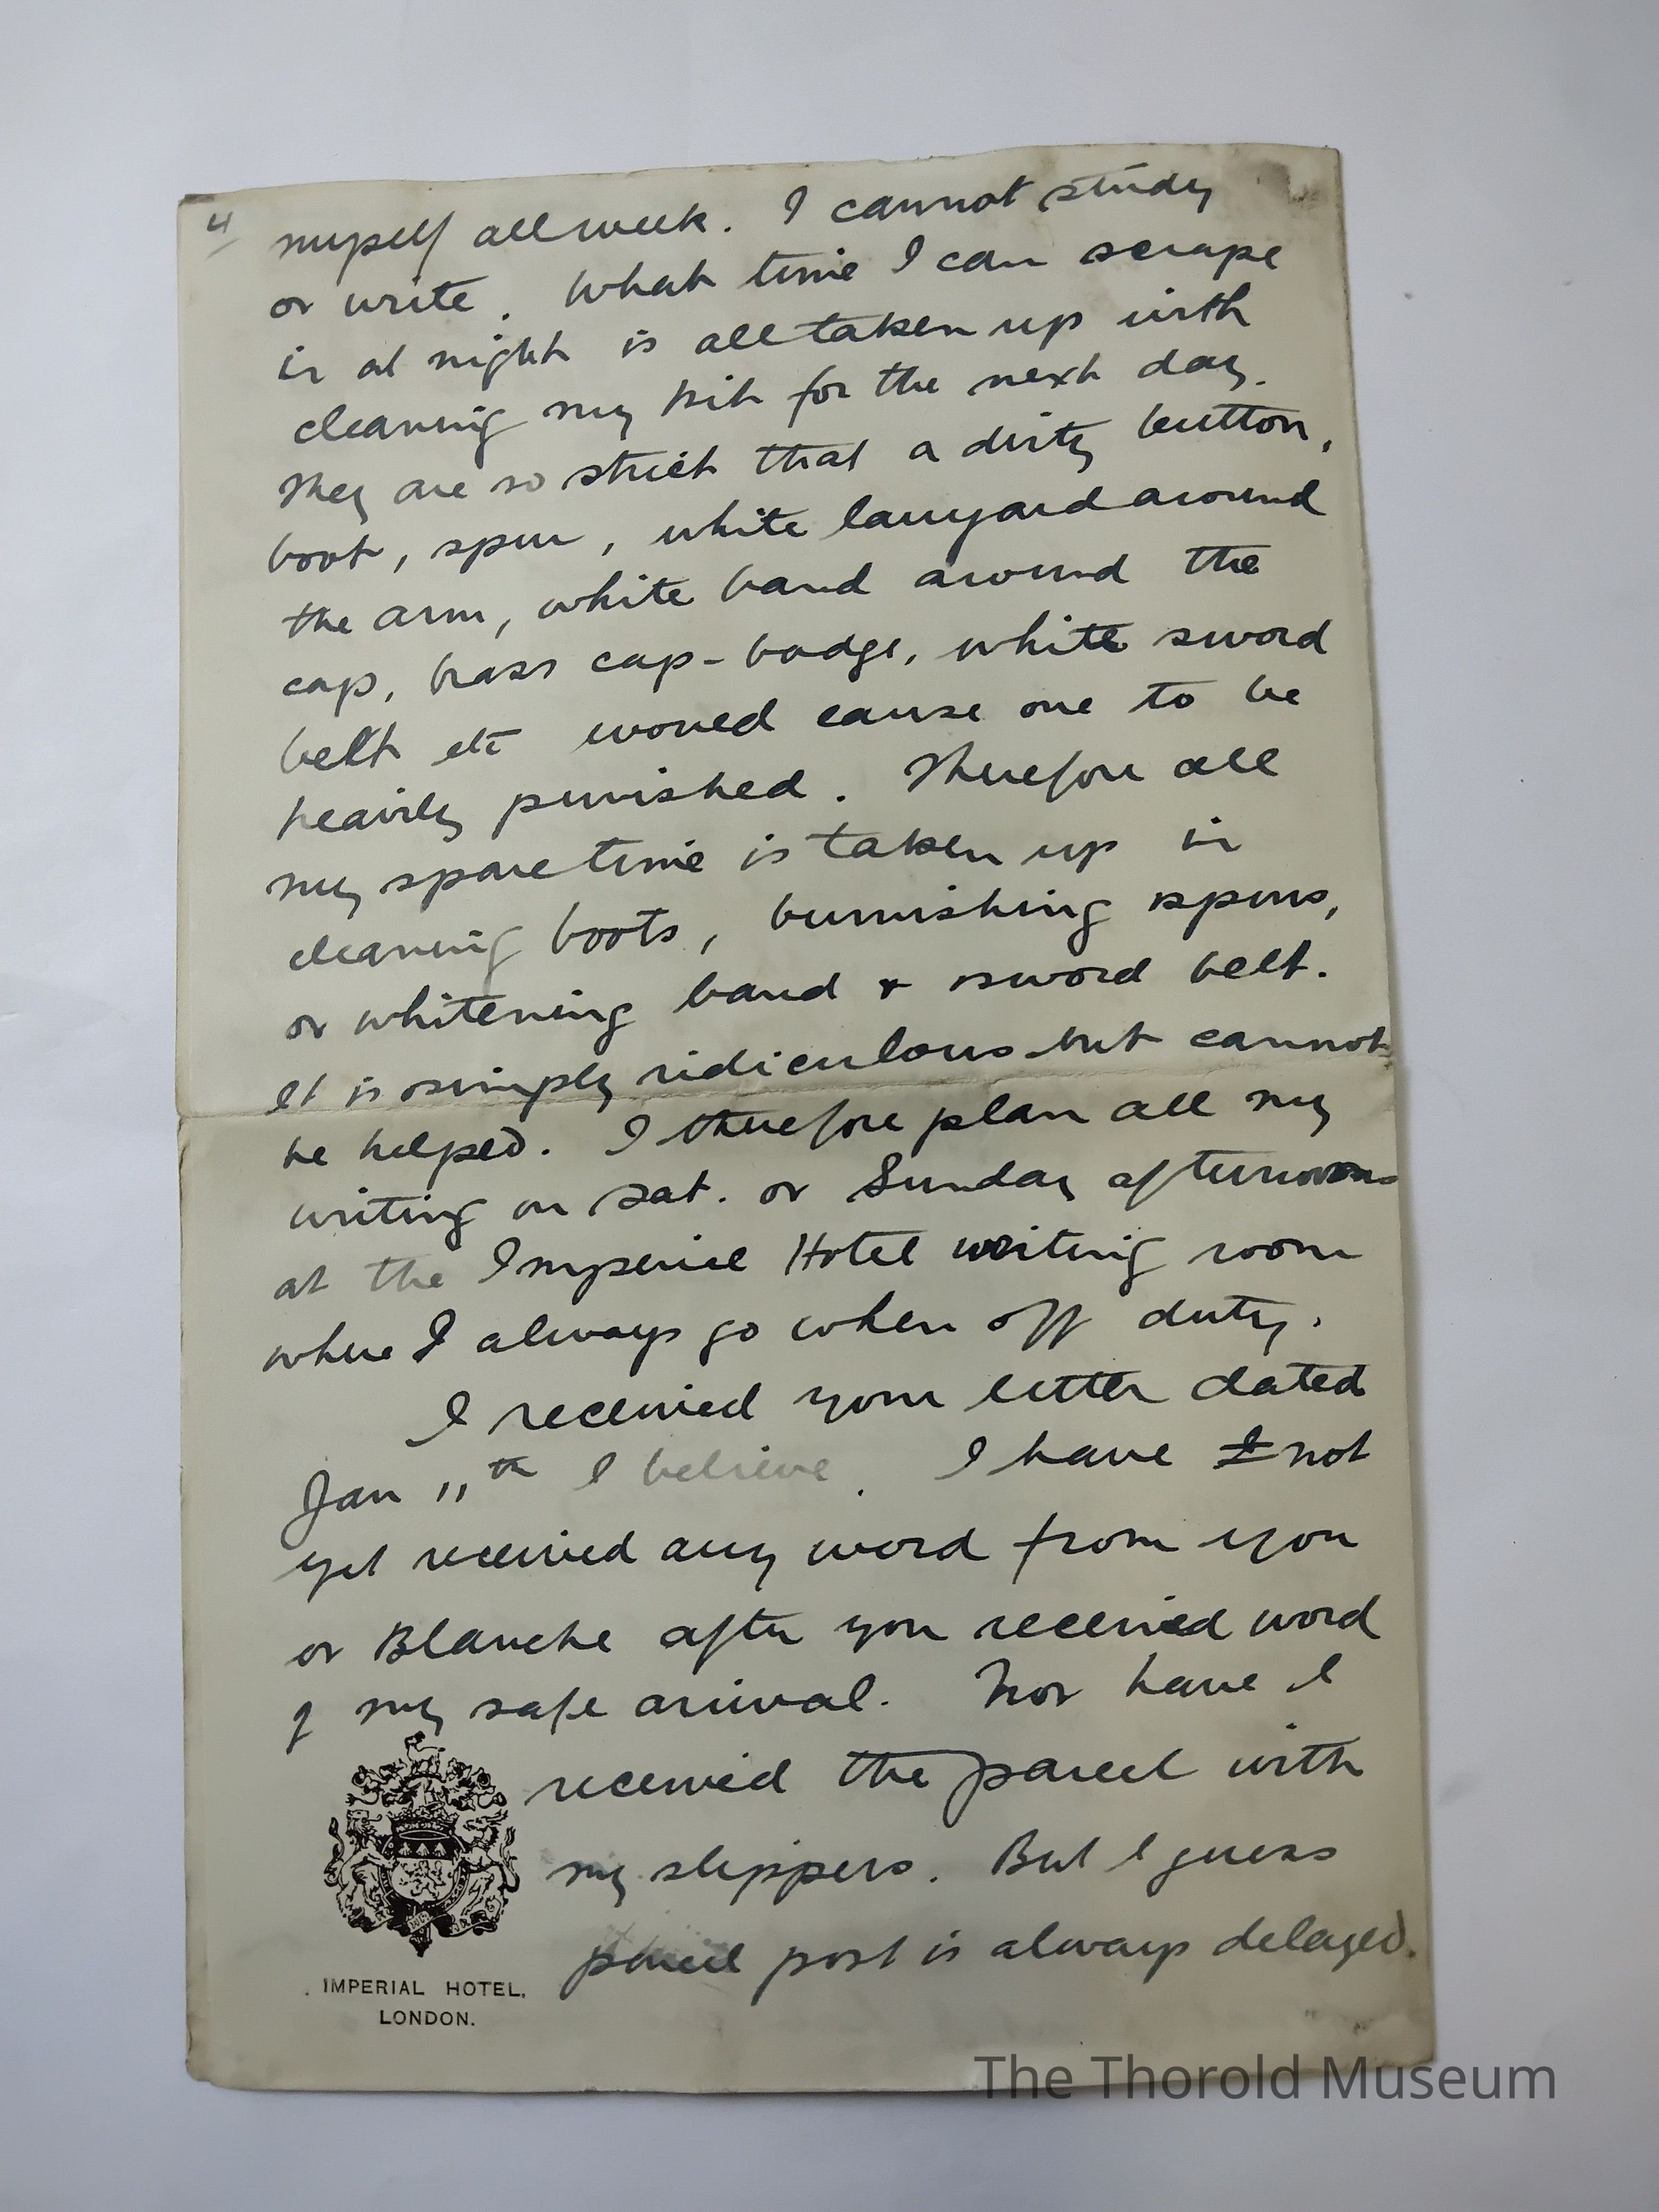 4/
myself all week. I cannot study
or write. What time I can scrape
in at night is all taken up with
cleaning my kit for the next day.
They are so strict that a dirty button,
boot, spur, white lanyard around
the arm, white band around the
cap, brass cap-badge, white sword
belt etc would cause one to be
heavily punished. Therefore all
my spare time is taken up in
cleaning boots, burnishing spurs,
or whitening band & sword belt.
It is simply ridiculous but cannot
be helped. I therefore plan all my
writing on Sat. or Sunday afternoon
at the Imperial Hotel writing room
where I always go when off duty.
I received your letter dated
Jan 11th I believe. I have I not
yet received any word from you
or Blanche after you received word
of my safe arrival. Nor have I
received the parcel with
my slippers. But I guess
parcel post is always delayed.
IMPERIAL HOTEL,
LONDON.
The Thorold Museum